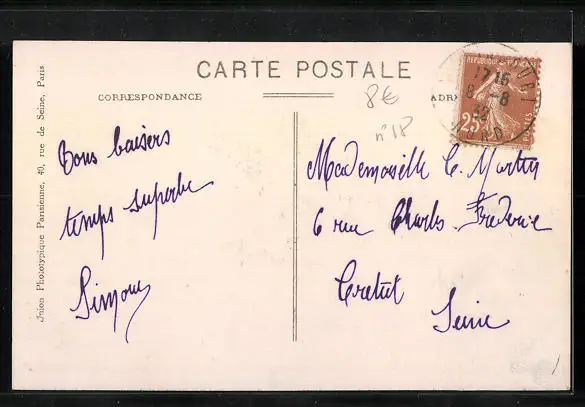 CARTE POSTALE
CORRESPONDANCE
ADR
8€
n° 18
REPUBLIQUE FRANÇAISE
25
17 15
8-8
32
NORD
Bons baisers
temps superbe
Simone
Mademoiselle C. Martin
6 rue Charles-Frederic
Creteil
Seine
Union Phototypique Parisienne, 40, rue de Seine, Paris